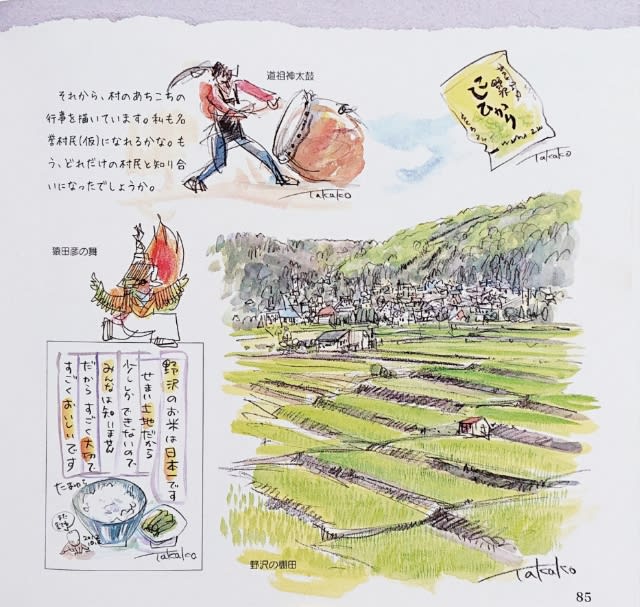 それから、村のあちこちの
行事を描いています。私も名
誉村民(仮)になれるかな。も
う、どれだけの村民と知り合
いになったでしょうか。
道祖神太鼓
Takako
野沢
こしひかり
Takako
猿田彦の舞
野沢のお米は日本一です
せまい土地だから
少ししかできないので
みんなは知りません
だからすごく大切で
すごくおいしいです
Takako
野沢の棚田
Takako
85